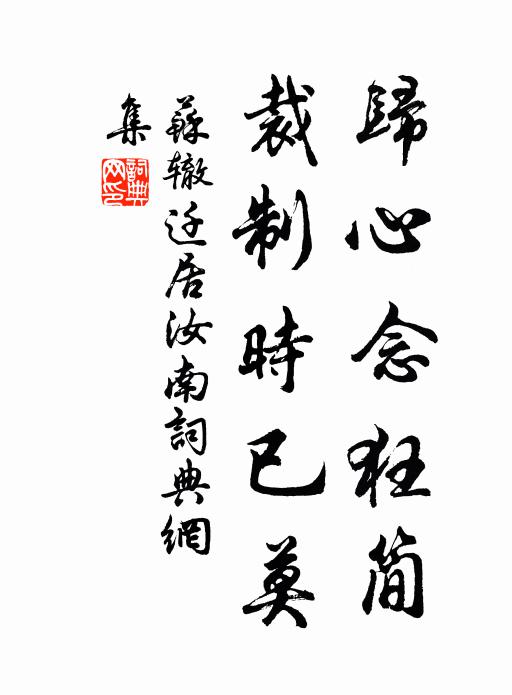 歸心念狂簡
裁制時已莫
蘇辙迁居汝南詞典網
集
詞典
网印